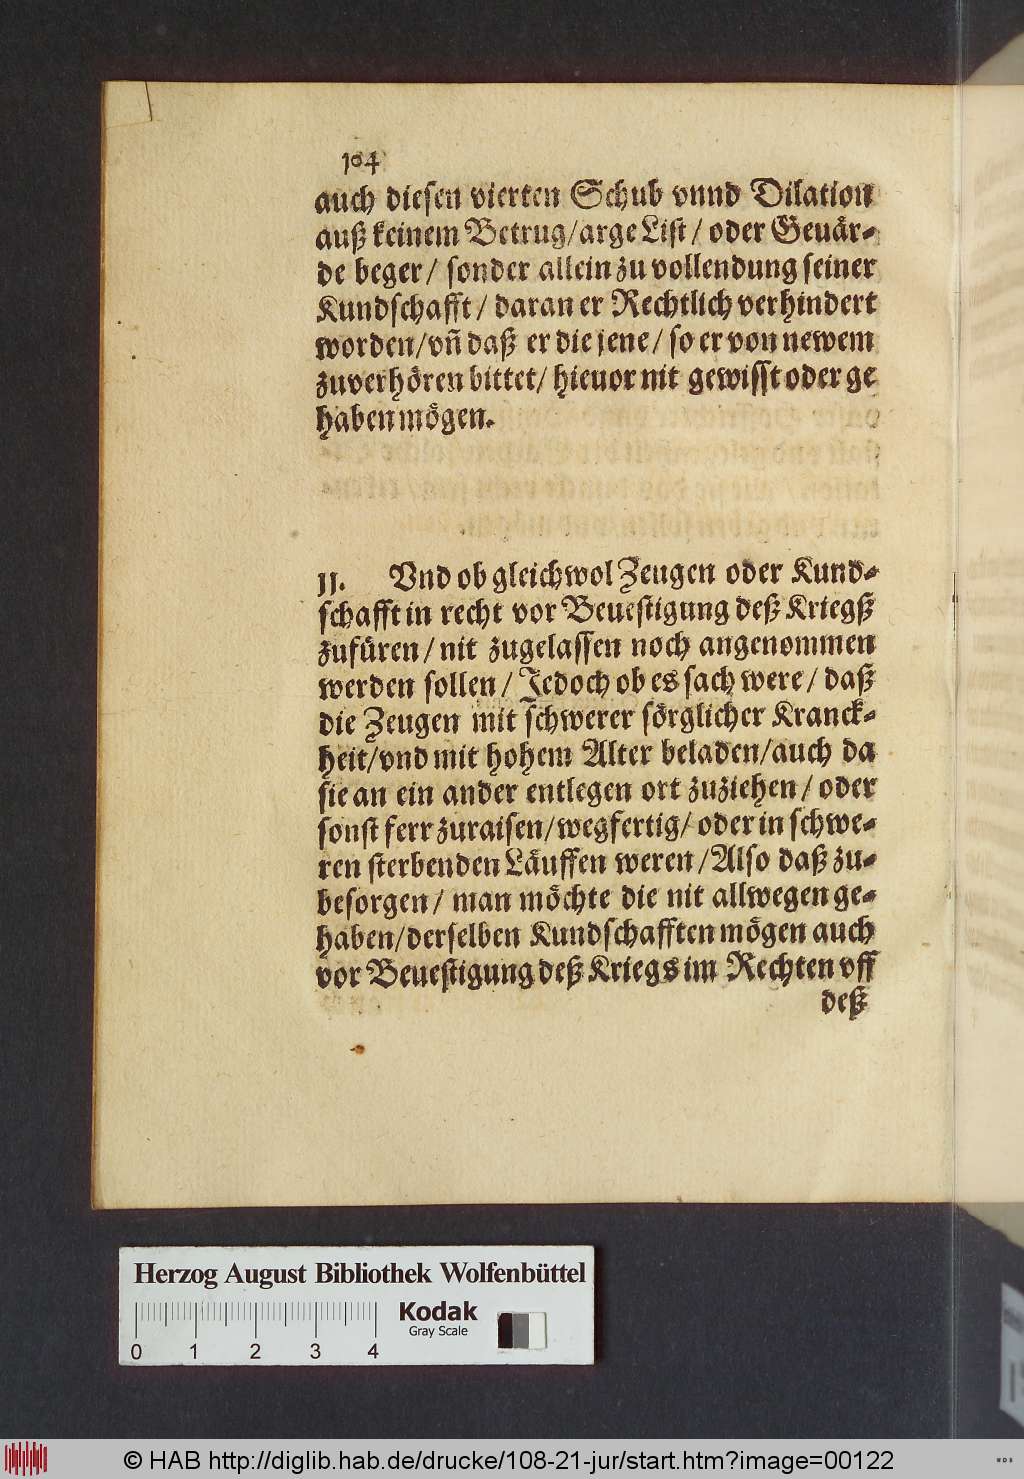 104
auch diesen vierten Schub vnnd Dilation
auß keinem Betrug/arge List/ oder Geuär-
de beger/ sonder allein zu vollendung seiner
Kundschafft/ daran er Rechtlich verhindert
worden/vñ daß er die jene/ so er von newem
zuverhören bittet/ hieuor nit gewisst oder ge
haben mögen.
11. Vnd ob gleichwol Zeugen oder Kund-
schafft in recht vor Beuestigung deß Kriegß
zufüren/ nit zugelassen noch angenommen
werden sollen/ Jedoch ob es sach were/ daß
die Zeugen mit schwerer sörglicher Kranck-
heit/vnd mit hohem Alter beladen/auch da
sie an ein ander entlegen ort zuziehen/ oder
sonst ferr zuraisen/wegfertig/ oder in schwe-
ren sterbenden Läuffen weren/Also daß zu-
besorgen/ man möchte die nit allwegen ge-
haben/derselben Kundschafften mögen auch
vor Beuestigung deß Kriegs im Rechten vff
deß
Herzog August Bibliothek Wolfenbüttel
Kodak
Gray Scale
0 1 2 3 4
© HAB http://diglib.hab.de/drucke/108-21-jur/start.htm?image=00122